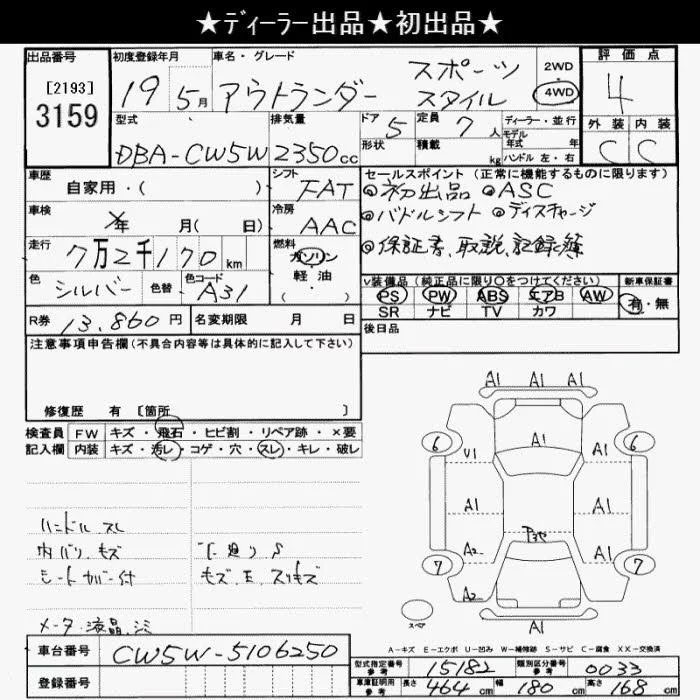 ★ディーラー出品★初出品★
出品番号 初度登録年月 車名・グレード 評価点
[2193] 19 5月 アウトランダー スポーツ スタイル 2WD 4WD 4
3159 型式 排気量 ドア 5 定員 7 人 ディーラー・並行 外装 内装
DBA-CW5W 2350cc 形状 積載 kg モデル年式 年 ハンドル 左・右 C C
車歴 自家用・( ) シフト FAT セールスポイント (正常に機能するものに限ります)
◎初出品 ◎ASC
車検 年 月( 日) 冷房 AAC ◎パドルシフト ◎ディスチャージ
走行 7万2千170km 燃料 ガソリン 軽・油 ・( ) ◎保証書、取説、記録簿
色 シルバー 色替 色コード A31 ∨装備品 (純正品に限り○をつけてください) 新車保証書
PS PW ABS エアB AW 有・無
SR ナビ TV カワ
R券 13.860円 名変期限 月 日 後日品
注意事項申告欄(不具合内容等は具体的に記入して下さい)
修復歴 有 [箇所 ]
検査員 FW キズ・飛石・ヒビ割・リペア跡・×要
記入欄 内装 キズ・汚レ・コゲ・穴・スレ・キレ・破レ
A1 A1 A1
6 A1 6
U1
A1 A1
A2 A1
7 7
A2
スペア A1
ハンドル スレ
内バリ、キズ
シートカバー付 キズ、E、スリキズ
メータ液晶
A-キズ E-エクボ U-凹み W-補修跡 S-サビ C-腐食 XX-交換済
車台番号 CW5W-5106250
型式指定番号 参考 15182 類別区分番号 参考 0033
登録番号 車庫証明用 参考 長さ 464cm 幅 180cm 高さ 168cm